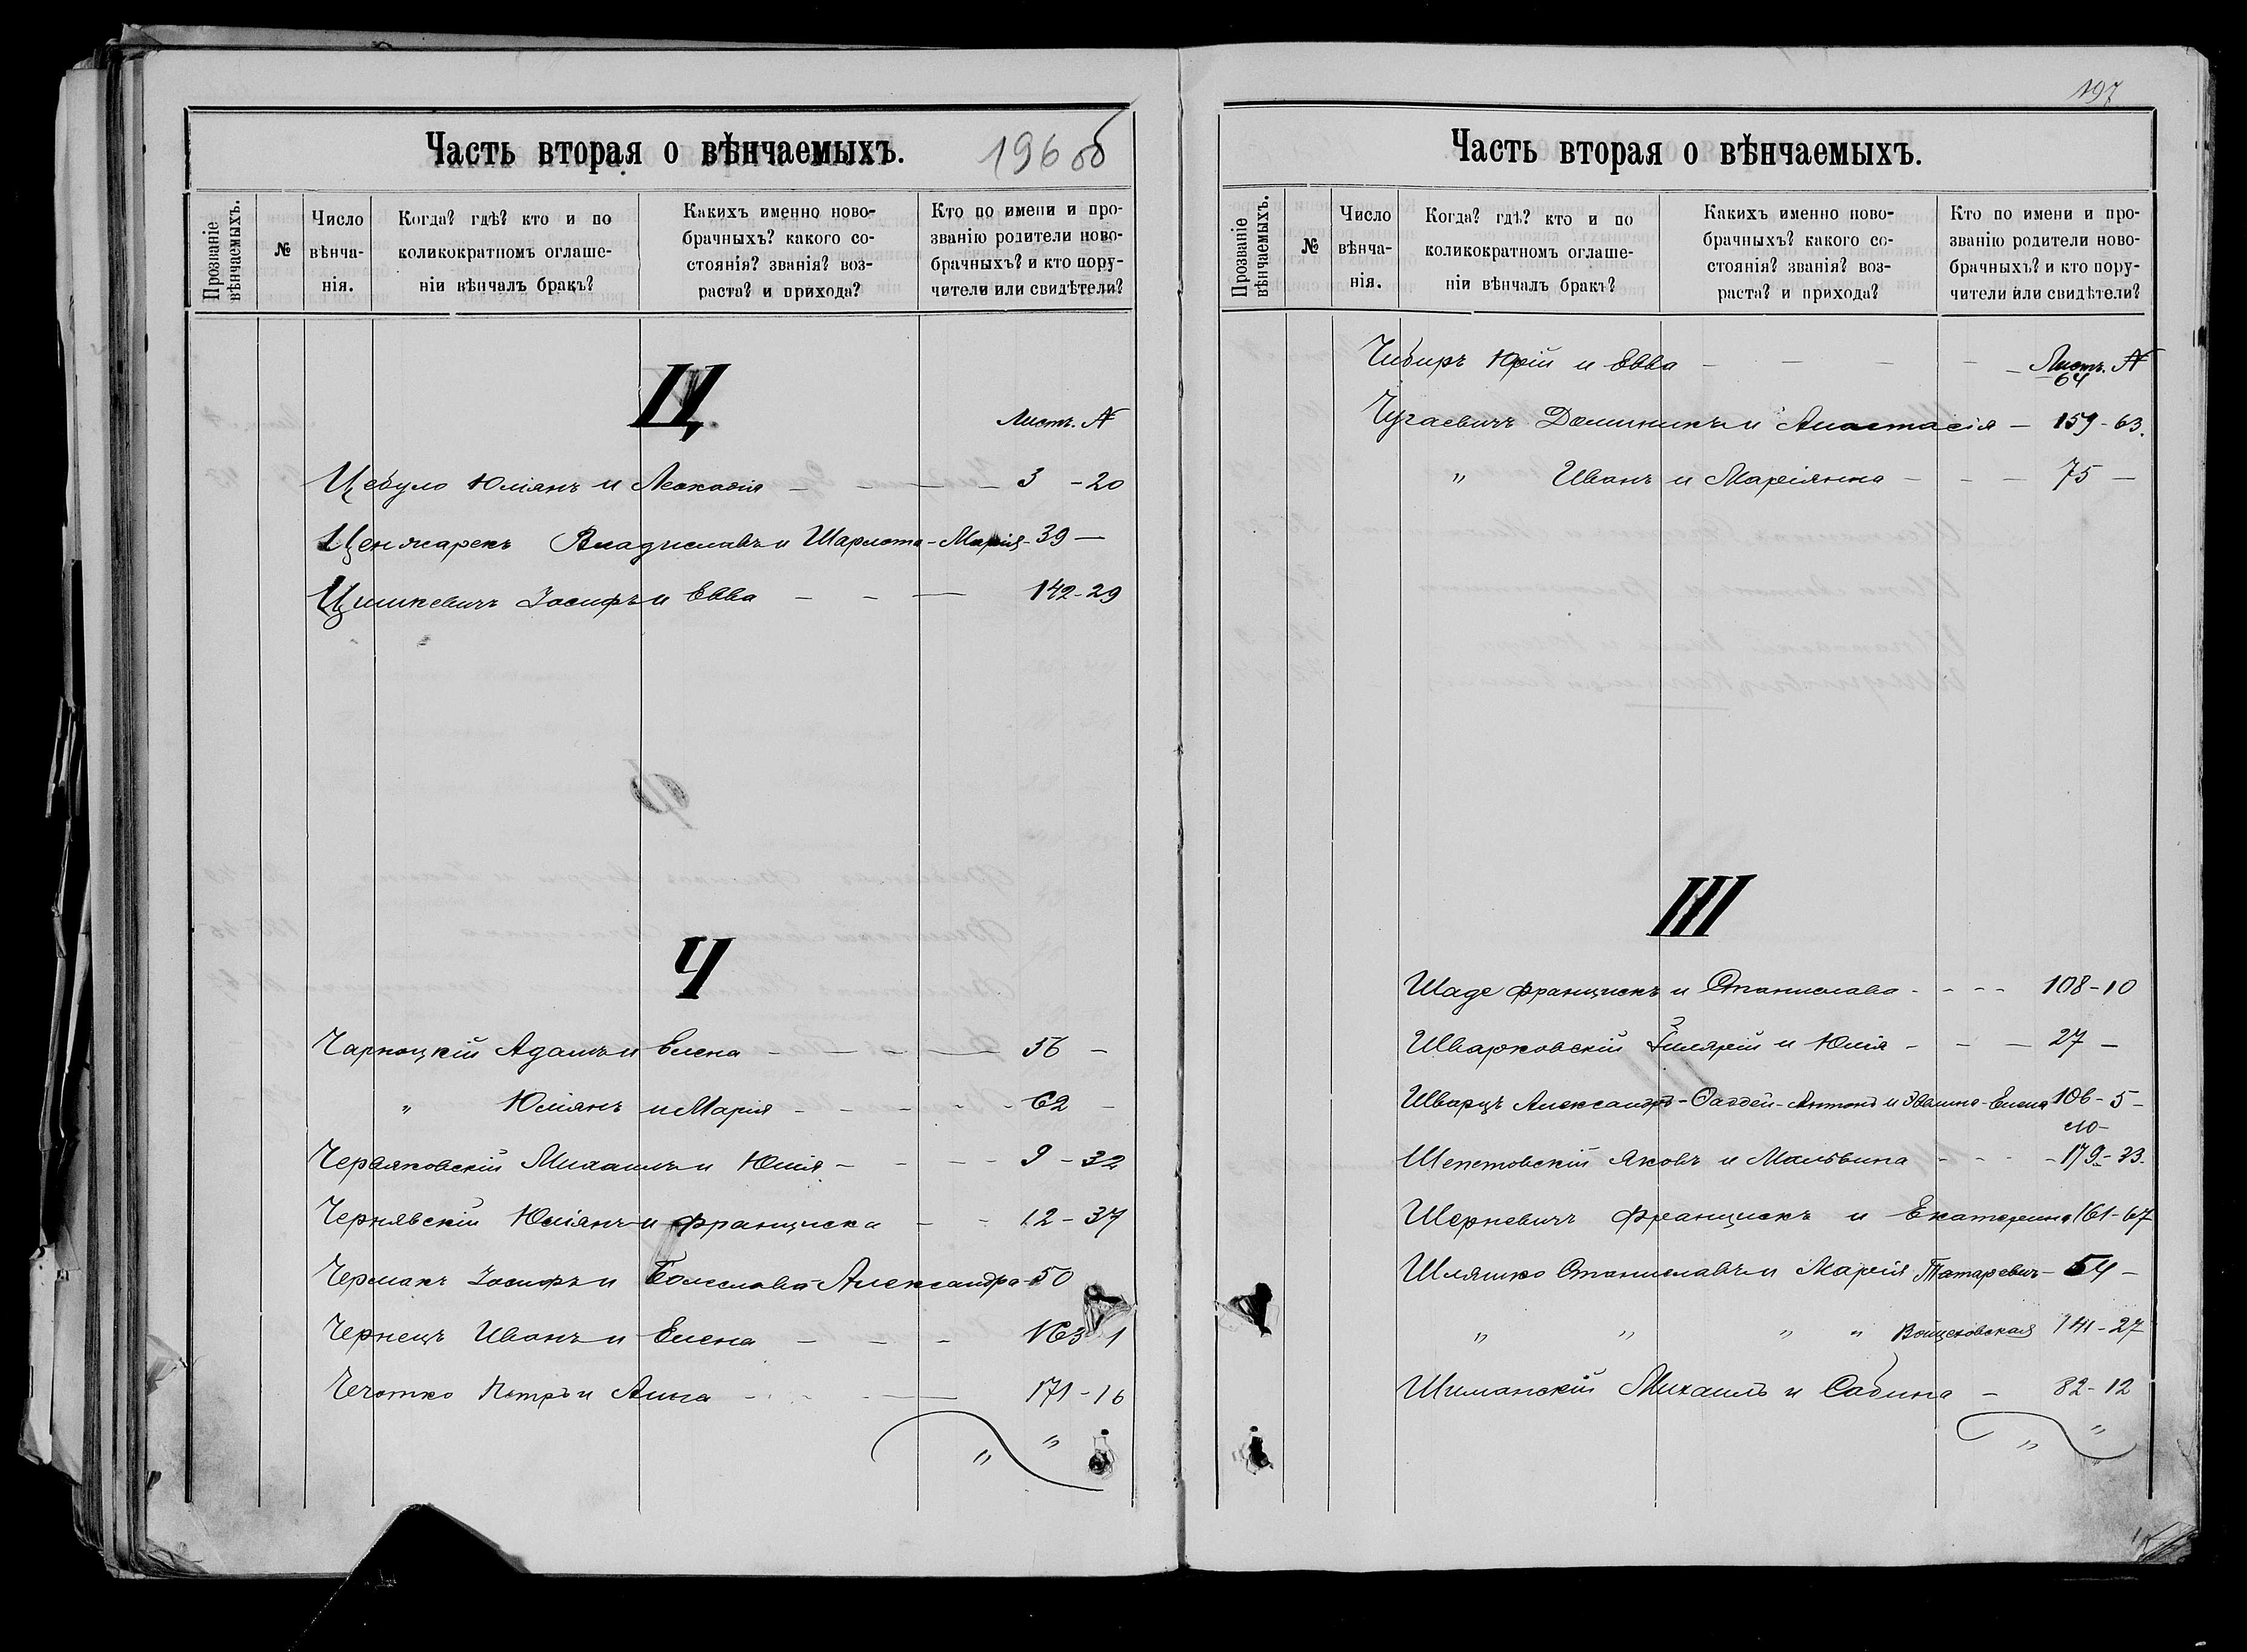 Часть вторая о вѣнчаемыхъ. 196 об
Прозваніе вѣнчаемыхъ.
№
Число вѣнча-нія.
Когда? гдѣ? кто и по
коликократномъ оглаше-
ніи вѣнчалъ бракъ?
Какихъ именно ново-
брачныхъ? какого со-
стоянія? званія? воз-
раста? и прихода?
Кто по имени и про-
званію родители ново-
брачныхъ? и кто пору-
чители или свидѣтели?
Ц.
Листъ. N
Цебуло Юліянъ и Леокадія - - - - 3 - 20
Ценжарекъ Владиславъ и Шарлота - Марія - 39 -
Цишкевичъ Іосифъ и Евва - - - 142 - 29
Ч
Чарноцкій Адамъ и Елена - - - - 56 -
" Юліянъ и Марія - - - - - 62 -
Червяковскій Михаилъ и Юлія - - - - 9 - 32
Чернявскій Юліянъ и Франциска - - 12 - 37
Чермакъ Іосифъ и Болеслава Александра - 50
Чернецъ Иванъ и Елена - - - 163 1
Чечотко Петръ и Анна - - - - 171 - 16
" "
197
Часть вторая о вѣнчаемыхъ.
Прозваніе вѣнчаемыхъ.
№
Число вѣнча-нія.
Когда? гдѣ? кто и по
коликократномъ оглаше-
ніи вѣнчалъ бракъ?
Какихъ именно ново-
брачныхъ? какого со-
стоянія? званія? воз-
раста? и прихода?
Кто по имени и про-
званію родители ново-
брачныхъ? и кто пору-
чители или свидѣтели?
Листъ. N
Чибиръ Юрій и Евва - - - - - 64
Чугаевичъ Доминикъ и Анастасія - 159 - 63.
" Иванъ и Маріянна - - - 75 -
Ш
Шаде Францискъ и Станислава - - - - 108 - 10
Шварковскій Гилярій и Юлія - - - 27 -
Шварцъ Александръ - Фаддей - Антонъ и Эвелина - Елена 106 - 5 -
Шепетовскій Яковъ и Мальвина - - - - 179 - 33.
Шерневичъ Францискъ и Екатерина 161 - 67
Шляшко Станиславъ и Марія Татаревичъ - 54 -
" " " " Войцеховская 141 - 27
Шиманскій Михаилъ и Сабина - 82 - 12
" "